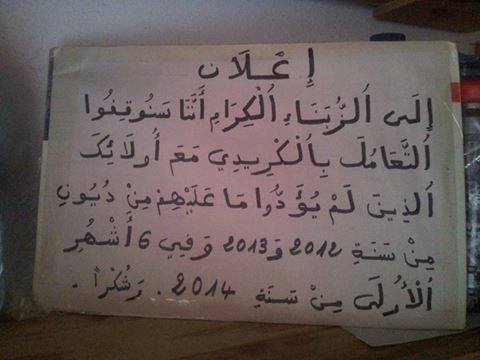 إِعْلَان
إِلَى الزُّبَنَاءِ الْكِرَامِ أَنَّنَا سَنُوقِفُوا
التَّعَامُلَ بِالْكْرِيدِي مَعَ أُولَائِكَ
الذِينَ لَمْ يُؤَدُّوا مَا عَلَيْهِمْ مِنْ دُيُونِ
مِنْ سَنَةِ 2012 وَ 2013 وَ فِي 6 أَشْهُرِ
الْأُولَى مِنْ سَنَةِ 2014. وَشُكْرًا.